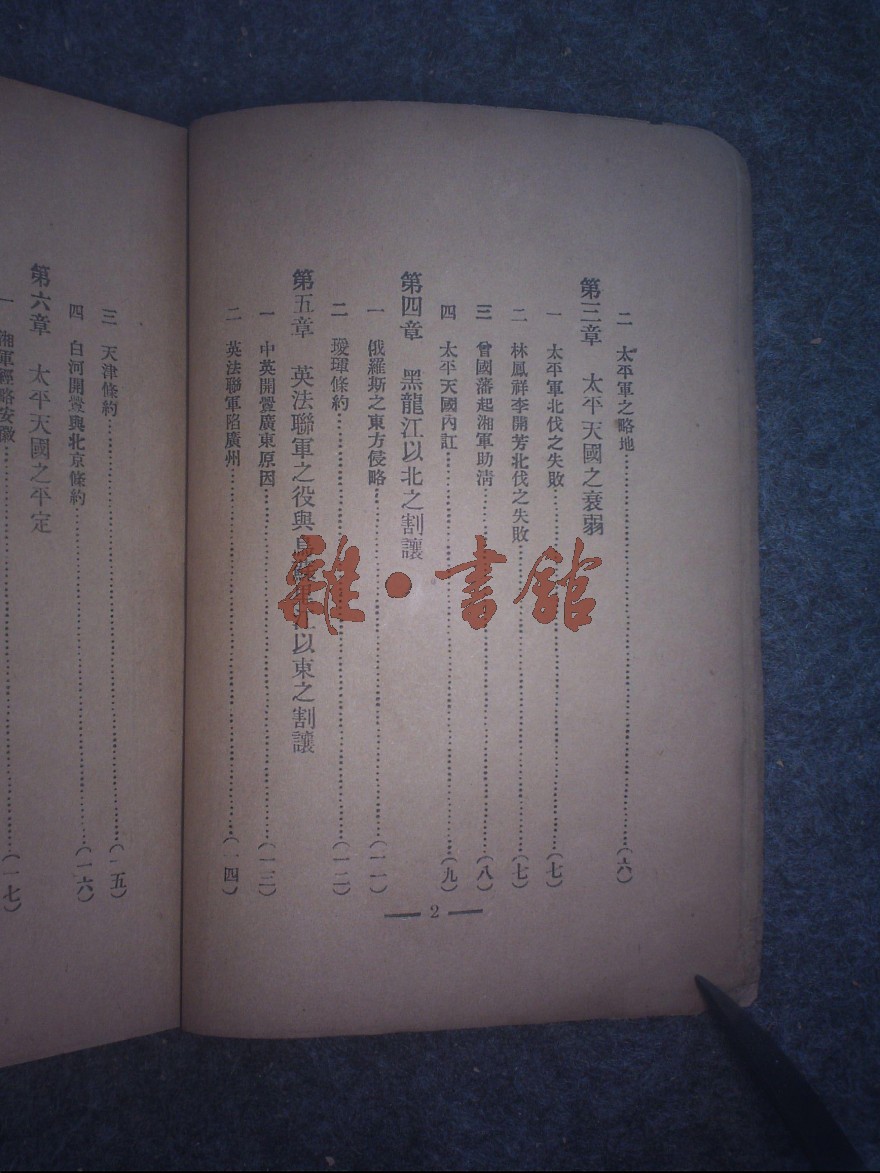 二 太平軍之略地……(六)
第三章 太平天國之衰弱
一 太平軍北伐之失敗……(七)
二 林鳳祥李開芳北伐之失敗……(七)
三 曾國藩起湘軍助清……(八)
四 太平天國內訌……(九)
第四章 黑龍江以北之割讓
一 俄羅斯之東方侵略……(一一)
二 璦琿條約……(一二)
第五章 英法聯軍之役與烏 江以東之割讓
一 中英開釁廣東原因……(一三)
二 英法聯軍陷廣州……(一四)
2
三 天津條約……(一五)
四 白河開釁與北京條約……(一六)
第六章 太平天國之平定
一 湘軍經略安徽……(一七)
雜·書館